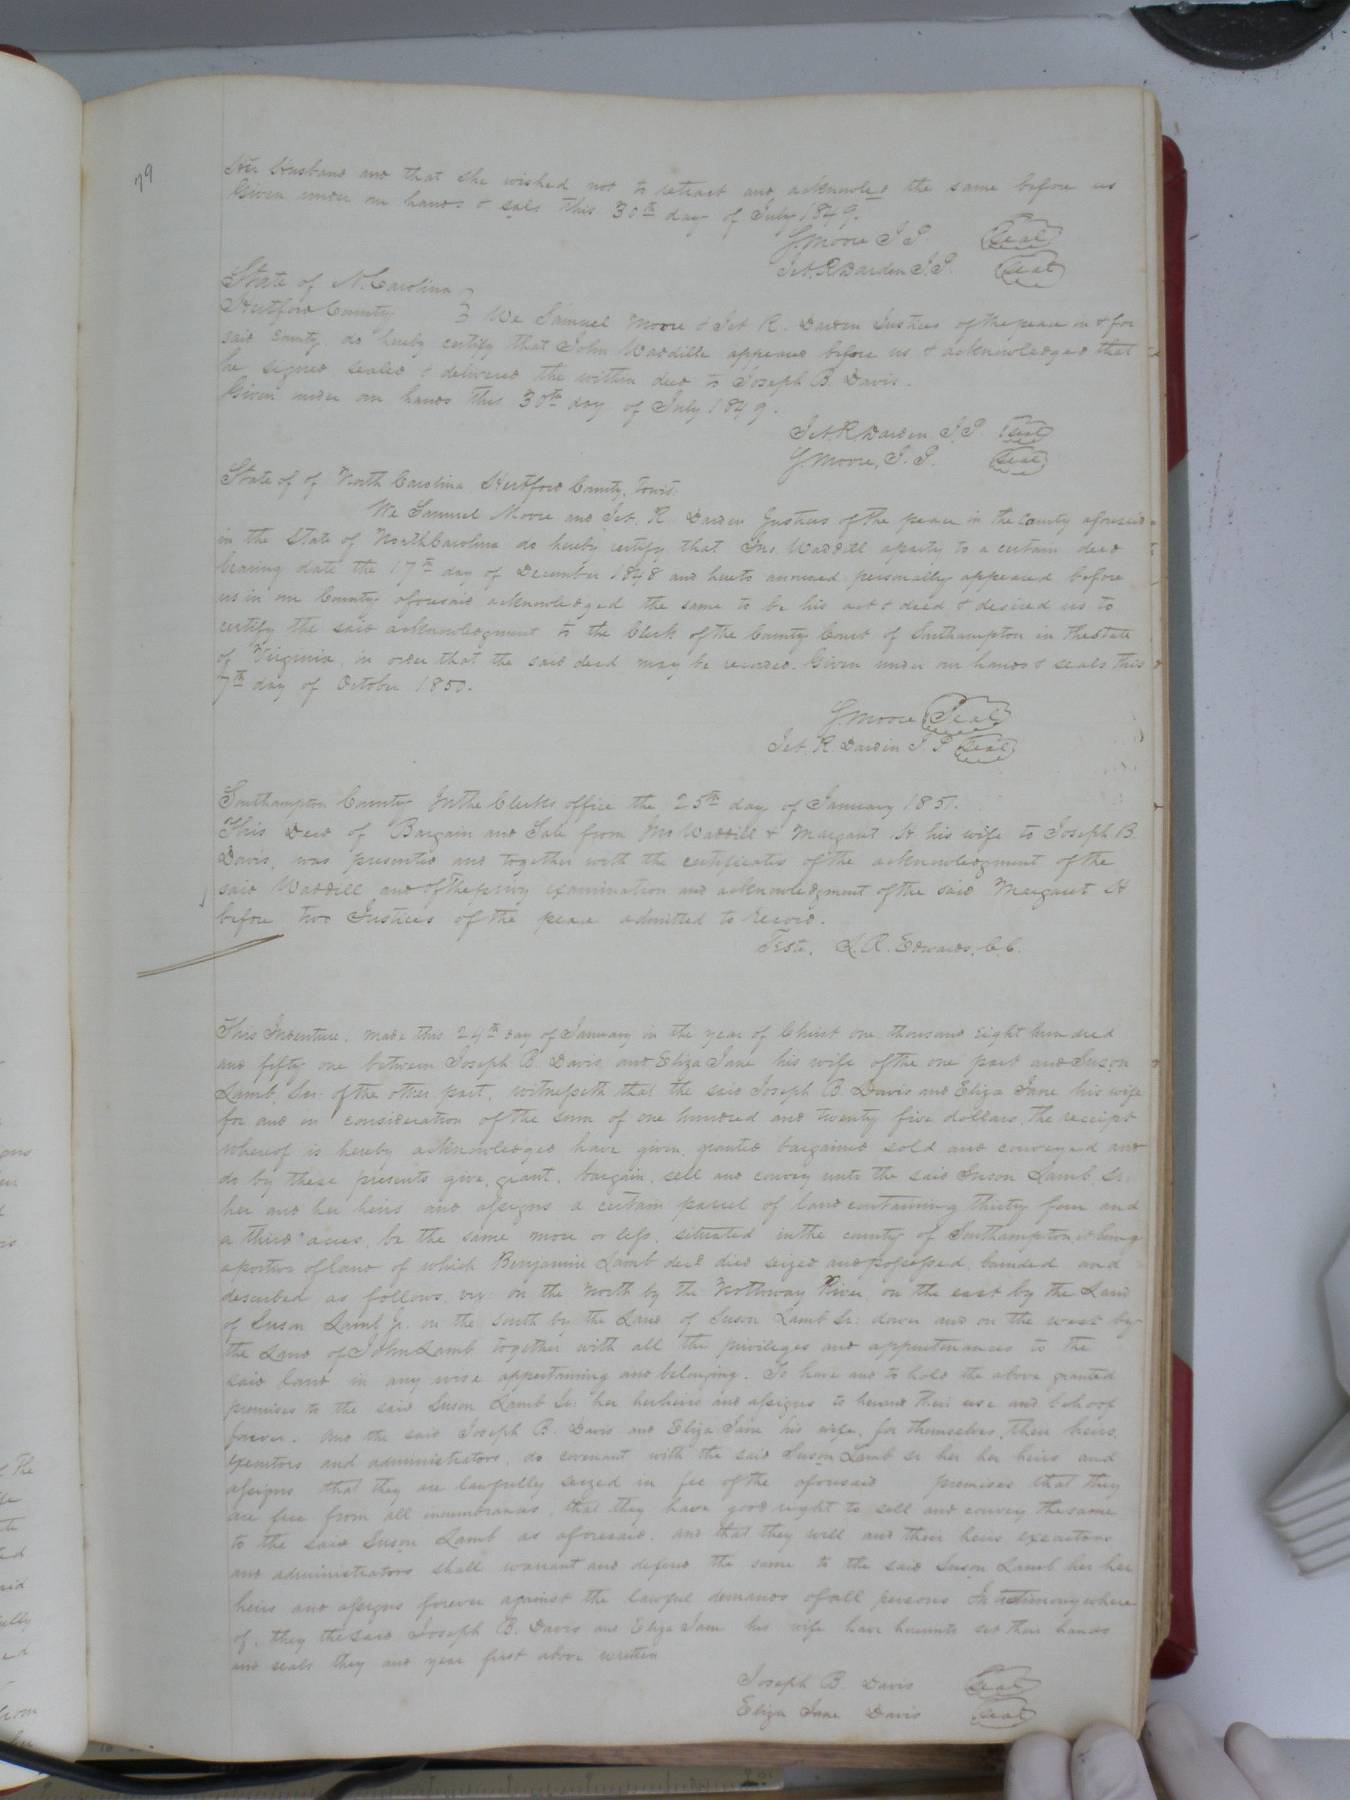 79
Her Husband and that she wished not to retract and acknowled the same before us
Given under our hands & seals this 30th day of July 1849.
G. Moore J. P. Seal
Jet. R. Darden J. P. Seal
State of N. Carolina
Hertford County } We Samuel Moore & Jet R. Darden Justices of the peace in & for
said County do hereby certify that John Waddille appeared before us & acknowledged that
he signed sealed & delivered the within deed to Joseph B. Davis.
Given under our hands this 30th day of July 1849.
Jet. R. Darden J. P. Seal
G. Moore, J. P. Seal
State of of North Carolina Hertford County, towit:
We Samuel Moore and Jet. R. Darden Justices of the peace in the County aforesaid
in the State of North Carolina do hereby certify that Jno. Waddill a party to a certain deed
bearing date the 17th day of December 1848 and hereto annexed personally appeared before
us in our County aforesaid acknowledged the same to be his act & deed & desired us to
certify the said acknowledgment to the Clerk of the County Court of Southampton in the state
of Virginia, in order that the said deed may be recorded. Given under our hands & seals this
7th day of October 1850.
G. Moore Seal
Jet. R. Darden J. P Seal
Southampton County In the Clerks office the 25th day of January 1851.
This Deed of Bargain and Sale from Jno Waddill & Margaret H his wife to Joseph B.
Davis, was presented and together with the certificates of the acknowledgment of the
said Waddill and of the privy examination and acknowledgment of the said Margaret H
before two Justices of the peace admitted to record.
Teste, L. R. Edwards, C. C.
This Indenture, made this 24th day of January in the year of Christ one thousand eight hundred
and fifty one between Joseph B. Davis and Eliza Jane his wife of the one part and Suson
Lamb, Sr: of the other part, witnesseth that the said Joseph B. Davis and Eliza Jane his wife
for and in consideration of the sum of one hundred and twenty five dollars, the receipt
whereof is hereby acknowledged have given, granted bargained sold and conveyed and
do by these presents give, grant, bargain, sell and convey unto the said Suson Lamb, Sr:
her and her heirs and assigns a certain parcel of land containing thirty four and
a third acres, be the same more or less, situated in the county of Southampton, it being
a portion of land of which Benjamin Lamb decd died seized and possessed, bounded and
described as follows, viz: on the North by the Nottoway River, on the east by the Land
of Suson Lamb Jr. on the South by the Land of Suson Lamb Sr: dower and on the west by
the Land of John Lamb together with all the privileges and appurtenances to the
said land in any wise appertaining and belonging. To have and to hold the above granted
premises to the said Suson Lamb Sr: her her heirs and assigns to her and their use and behoof
forever. And the said Joseph B. Davis and Eliza Jane his wife, for themselves, their heirs,
executors and administrators, do covenant with the said Suson Lamb sr her her heirs and
assigns that they are lawfully seized in fee of the aforesaid premises that they
are free from all incumbrances, that they have good right to sell and convey the same
to the said Suson Lamb as aforesaid, and that they will and their heirs executors
and administrators shall warrant and defend the same to the said Suson Lamb her her
heirs and assigns forever against the lawful demands of all persons In testimony where
of, they the said Joseph B. Davis and Eliza Jane his wife have hereunto set their hands
and seals they and year first above written
Joseph B. Davis Seal
Eliza Jane Davis Seal